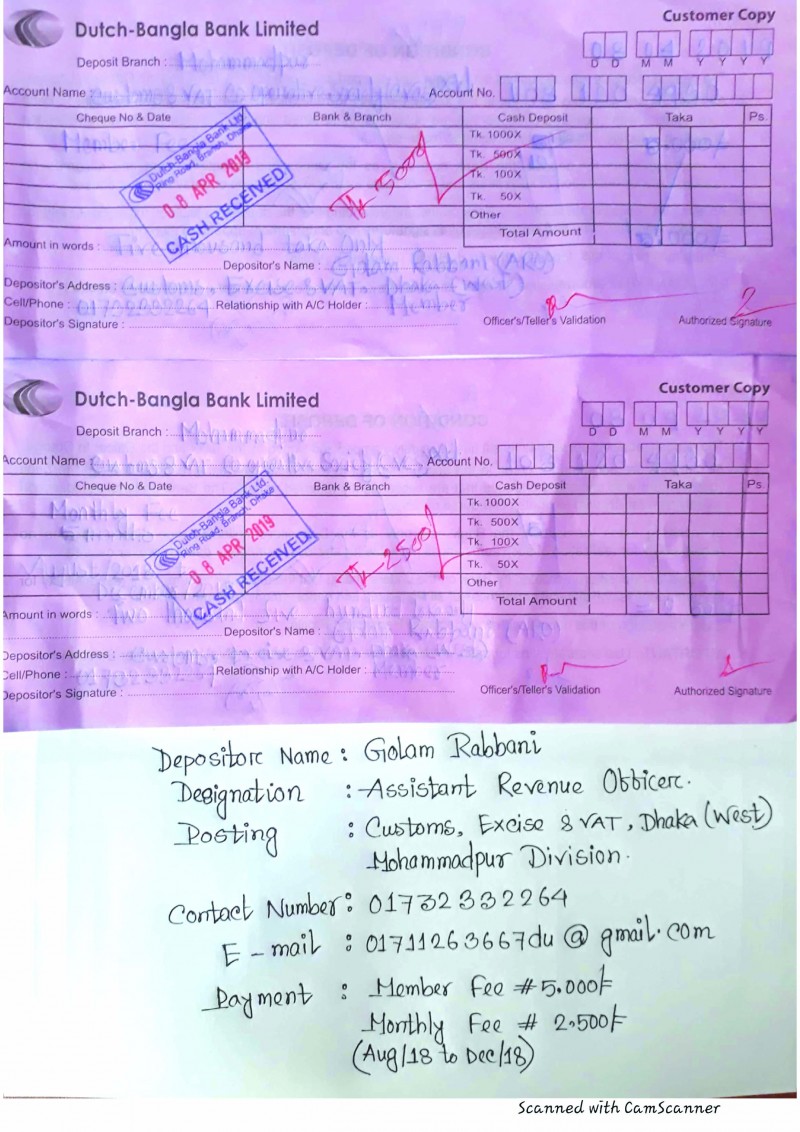 Customer Copy
Dutch-Bangla Bank Limited
Deposit Branch : Mohammadpur
D D M M Y Y Y Y
Account Name : Account No.
Cheque No & Date Bank & Branch Cash Deposit Taka Ps.
Member Fee
Tk. 1000X
Tk. 500X
Tk. 100X
Tk. 50X
Other
Total Amount
Dutch-Bangla Bank Ltd.
Ring Road, Branch, Dhaka
08 APR 2019
CASH RECEIVED
Tk 5000/
Amount in words : Five thousand taka only
Depositor's Name : Golam Rabbani (ARO)
Depositor's Address : Customs, Excise & VAT, Dhaka (West)
Cell/Phone : 01732332264 Relationship with A/C Holder : Member
Depositor's Signature : Officer's/Teller's Validation Authorized Signature
Customer Copy
Dutch-Bangla Bank Limited
Deposit Branch : Mohammadpur
D D M M Y Y Y Y
Account Name : Account No.
Cheque No & Date Bank & Branch Cash Deposit Taka Ps.
Monthly Fee
Tk. 1000X
Tk. 500X
Tk. 100X
Tk. 50X
Other
Total Amount
Dutch-Bangla Bank Ltd.
Ring Road, Branch, Dhaka
08 APR 2019
CASH RECEIVED
Tk 2500/
Amount in words : Two thousand five hundred
Depositor's Name : Golam Rabbani (ARO)
Depositor's Address :
Cell/Phone : Relationship with A/C Holder : Member
Depositor's Signature : Officer's/Teller's Validation Authorized Signature
Depositorc Name : Golam Rabbani
Designation : Assistant Revenue Officerc.
Posting : Customs, Excise & VAT, Dhaka (West)
Mohammadpur Division.
Contact Number : 01732332264
E-mail : 01711263667du@gmail.com
Payment : Member Fee # 5.000/-
Monthly Fee # 2.500/-
(Aug/18 to Dec/18)
Scanned with CamScanner